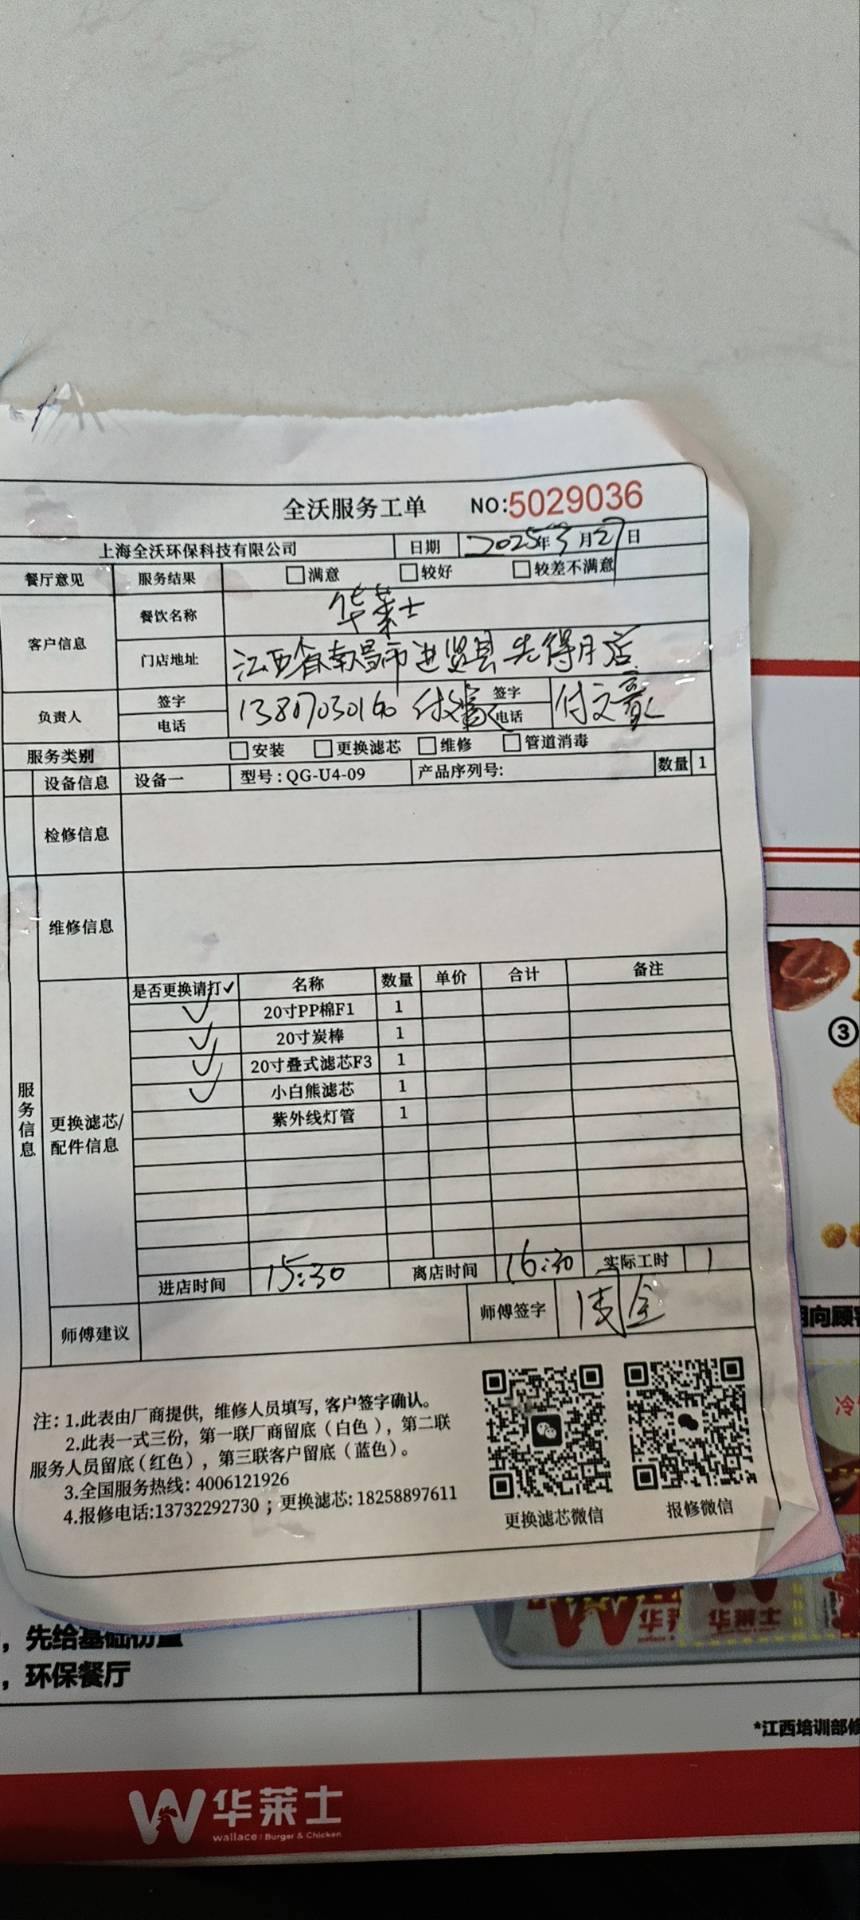 全沃服务工单 NO:5029036
上海全沃环保科技有限公司 日期 2025年3月27日
餐厅意见 服务结果 □满意 □较好 □较差不满意
客户信息 餐饮名称 华莱士
门店地址 江西省南昌市进贤县先得月店
负责人 签字 电话 13807030160 签字 电话 付文豪
服务类别 □安装 □更换滤芯 □维修 □管道消毒
设备信息 设备一 型号:QG-U4-09 产品序列号: 数量 1
检修信息
维修信息
服务信息
更换滤芯/配件信息
是否更换请打✓ 名称 数量 单价 合计 备注
✓ 20寸PP棉F1 1
✓ 20寸炭棒 1
✓ 20寸叠式滤芯F3 1
✓ 小白熊滤芯 1
紫外线灯管 1
进店时间 15:30 离店时间 16:30 实际工时 1
师傅建议 师傅签字
注: 1.此表由厂商提供, 维修人员填写, 客户签字确认。
2.此表一式三份, 第一联厂商留底(白色), 第二联
服务人员留底(红色), 第三联客户留底(蓝色)。
3.全国服务热线: 4006121926
4.报修电话:13732292730 ; 更换滤芯: 18258897611
更换滤芯微信 报修微信
③
, 先给基础
, 环保餐厅
华莱士
*江西培训部
华莱士
wallace | Burger & Chicken